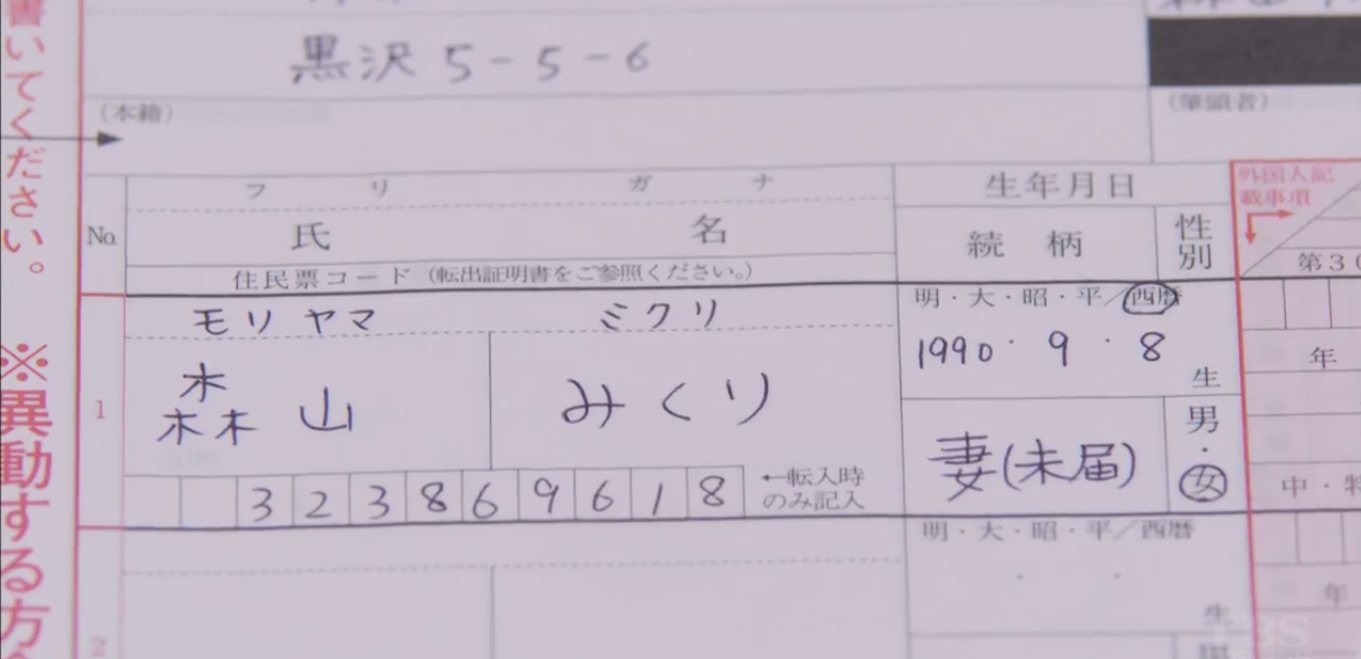 書いてください。
※異動する方
黒沢 5-5-6
(本籍)
(筆頭者)
フ リ ガ ナ
生年月日
外国人記
載事項
No.
氏 名
続 柄
性別
住民票コード(転出証明書をご参照ください。)
第30
モリ ヤマ ミクリ
明・大・昭・平/西暦
1990・9・8
生
年
1
森山 みくり
妻(未届)
男・女
3 2 3 8 6 9 6 1 8
←転入時
のみ記入
中・特
明・大・昭・平/西暦
・ ・
生
年
2
TBS